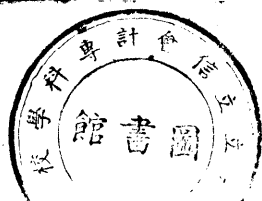 立立信會計專科學校
圖書館